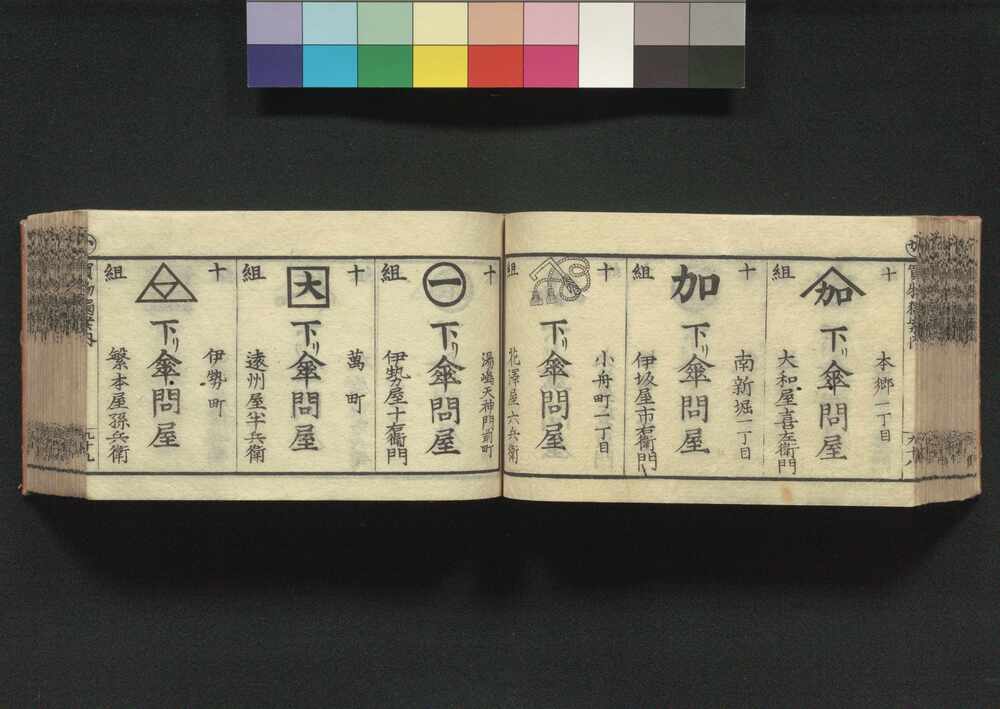 十組
加
本郷一丁目
下り傘問屋
大和屋喜左衛門
十組
加
南新堀一丁目
下り傘問屋
伊坂屋市右衛門
十組
小舟町二丁目
下り傘問屋
花澤屋六兵衛
十組
一
湯嶋天神門前町
下り傘問屋
伊勢屋十右衛門
十組
大
萬町
下り傘問屋
遠州屋半兵衛
十組
伊勢町
下り傘問屋
繁本屋孫兵衛